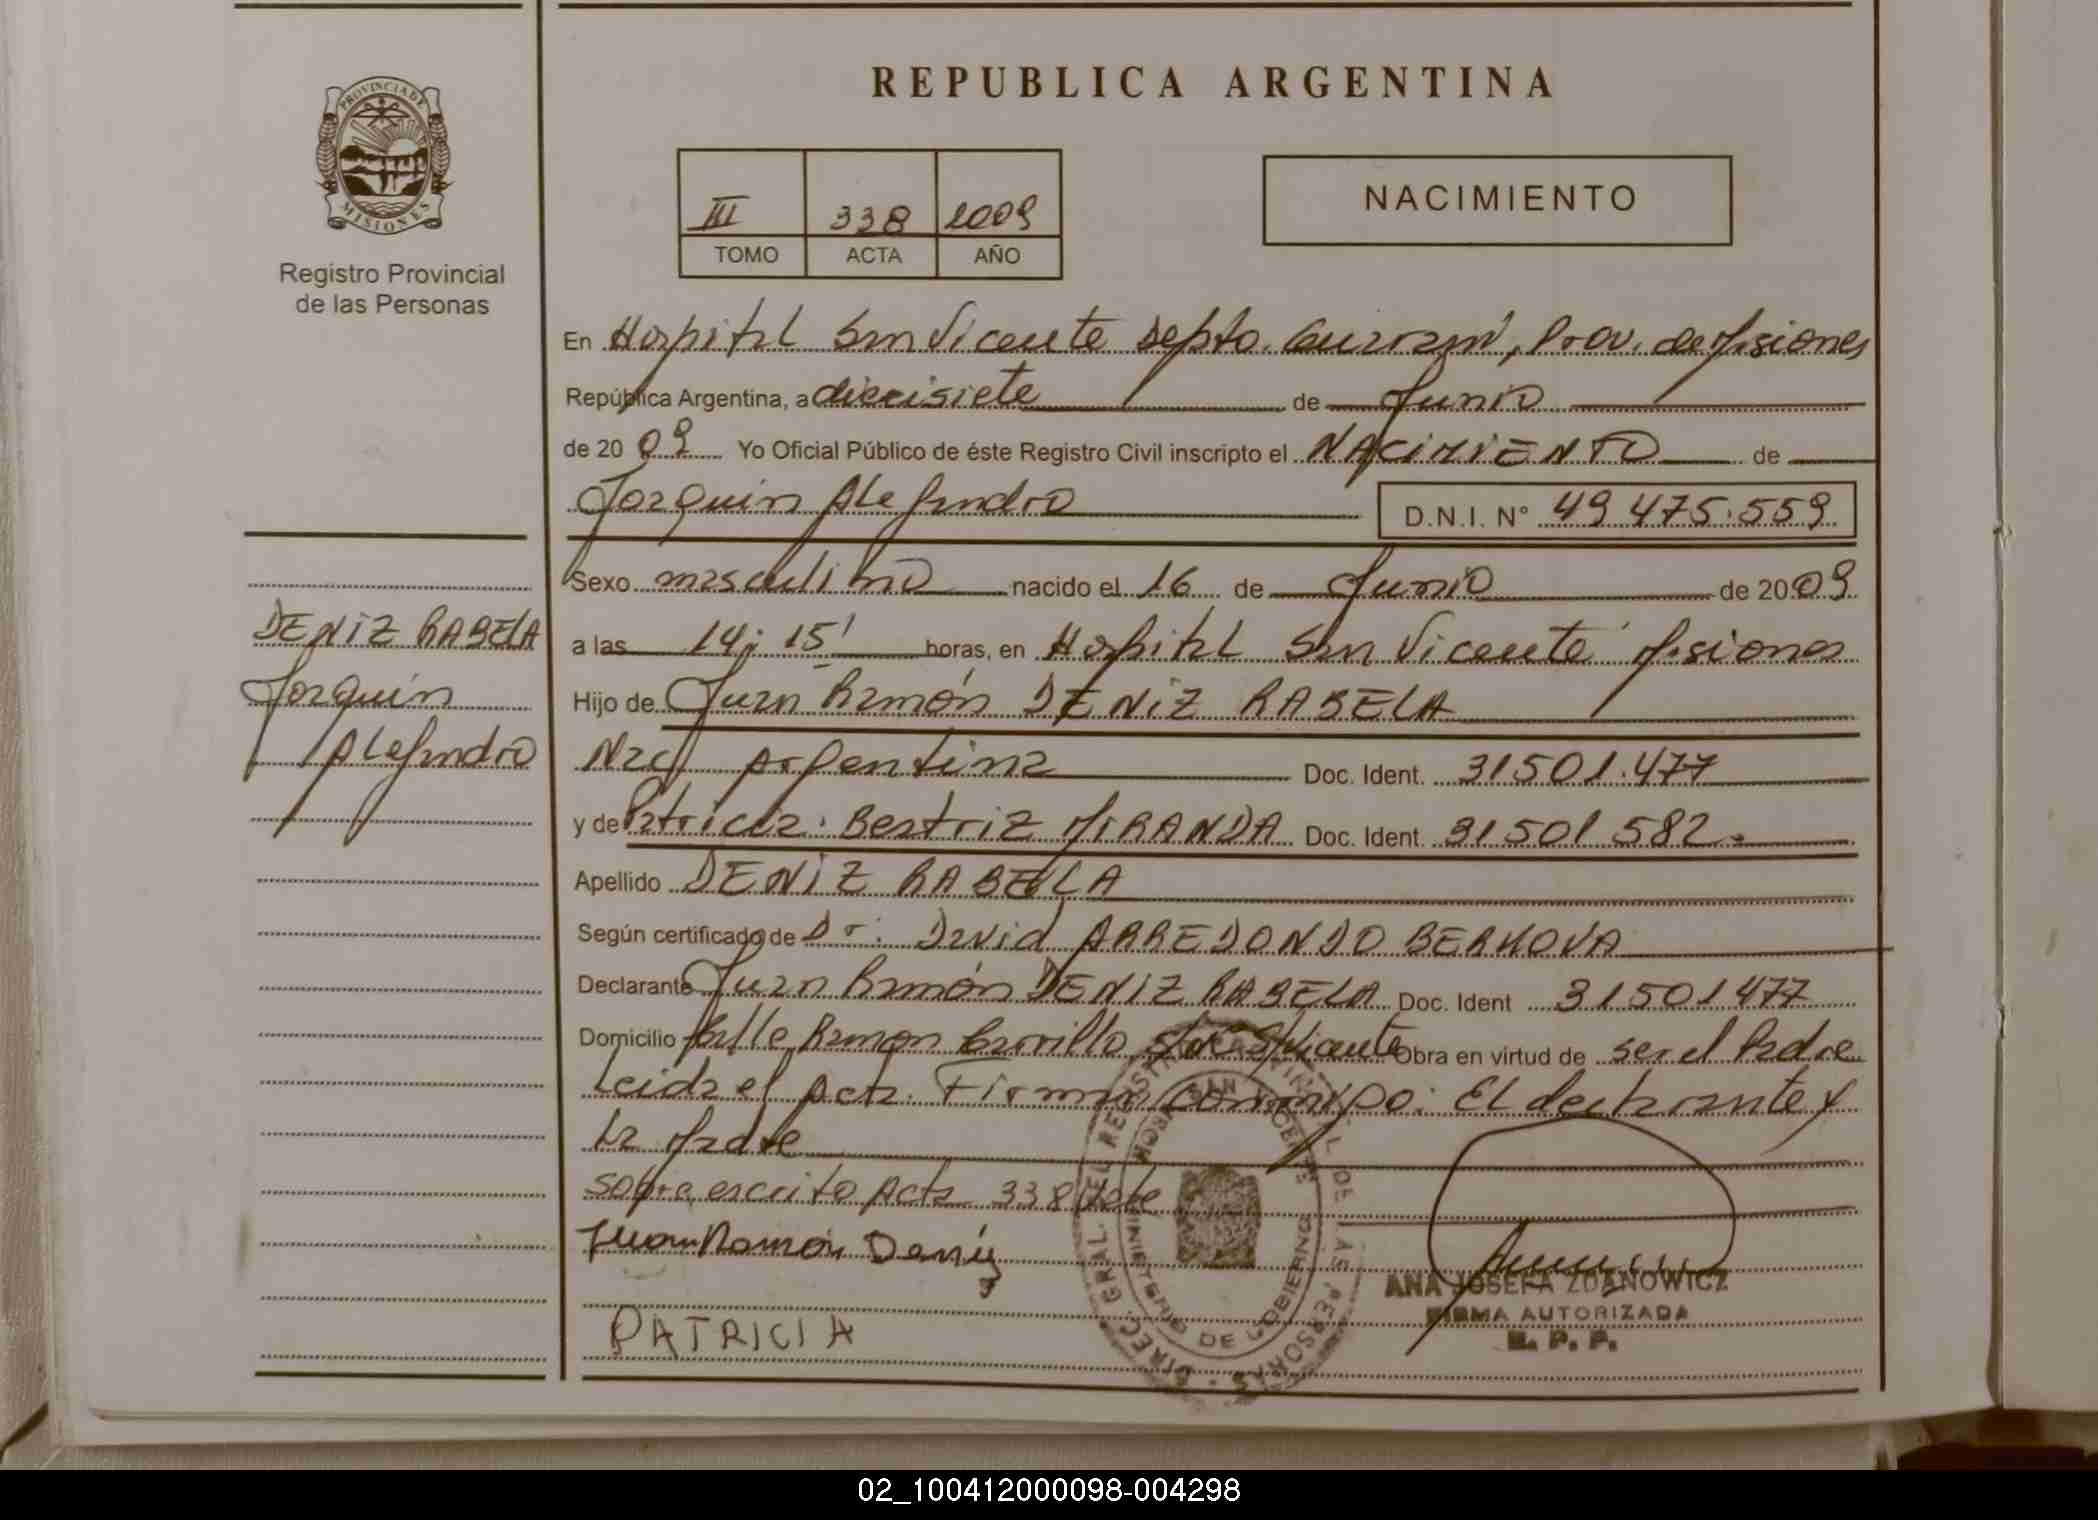 REPUBLICA ARGENTINA
PROVINCIA DE
MISIONES
Registro Provincial
de las Personas
III 338 2009
TOMO ACTA AÑO
NACIMIENTO
En Hospital San Vicente Depto. Guaraní, Prov. de Misiones
República Argentina, a diecisiete de Junio
de 2009 Yo Oficial Público de éste Registro Civil inscripto el NACIMIENTO de
Joaquín Alejandro D.N.I. N° 49 475.559
Sexo masculino nacido el 16 de Junio de 2009
a las 14; 15' horas, en Hospital San Vicente Misiones
Hijo de Juan Ramón DENIZ RABELA
Nac Argentina Doc. Ident. 31501.477
y de Patricia Beatriz MIRANDA Doc. Ident. 31501582.
Apellido DENIZ RABELA
Según certificado de Dr. David ARREDONDO BERNOVA
Declarante Juan Ramón DENIZ RABELA Doc. Ident 31501477
Domicilio Calle Ramon Carrillo S/N S/Vicente Obra en virtud de ser el Padre
Leida el Acta. Firma conmigo: El declarante y
La Madre
sobre escrito Acta 338 Vale
Juan Ramón Deniz
PATRICIA
DENIZ RABELA
Joaquín
Alejandro
DIREC. GRAL. DEL REGISTRO PROVINCIAL DE LAS PERSONAS
MINISTERIO DE GOBIERNO
SAN VICENTE
ANA JOSEFA ZDANOWICZ
FIRMA AUTORIZADA
R. P. P.
02_100412000098-004298